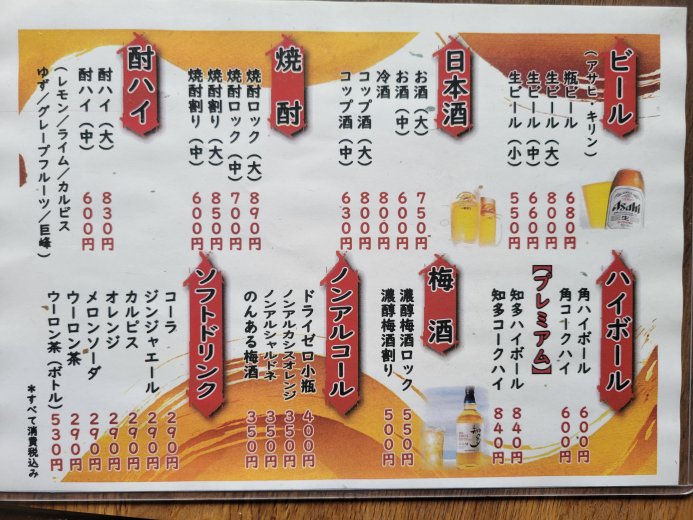 ビール
(アサヒ・キリン)
瓶ビール 680円
生ビール(大) 800円
生ビール(中) 660円
生ビール(小) 550円
Asahi
日本酒
お酒(大) 750円
お酒(中) 600円
冷酒 800円
コップ酒(大) 800円
コップ酒(中) 630円
焼酎
焼酎ロック(大) 890円
焼酎ロック(中) 700円
焼酎割り(大) 850円
焼酎割り(中) 600円
酎ハイ
酎ハイ(大) 830円
酎ハイ(中) 600円
(レモン/ライム/カルピス
ゆず/グレープフルーツ/巨峰)
ハイボール
角ハイボール 600円
角コークハイ 600円
【プレミアム】
知多ハイボール 840円
知多コークハイ 840円
知多
梅酒
濃醇梅酒ロック 550円
濃醇梅酒割り 500円
ノンアルコール
ドライゼロ小瓶 400円
ノンアルカシスオレンジ 350円
ノンアルシャルドネ 350円
のんある梅酒 350円
ソフトドリンク
コーラ 290円
ジンジャエール 290円
カルピス 290円
オレンジ 290円
メロンソーダ 290円
ウーロン茶 290円
ウーロン茶(ボトル) 530円
*すべて消費税込み